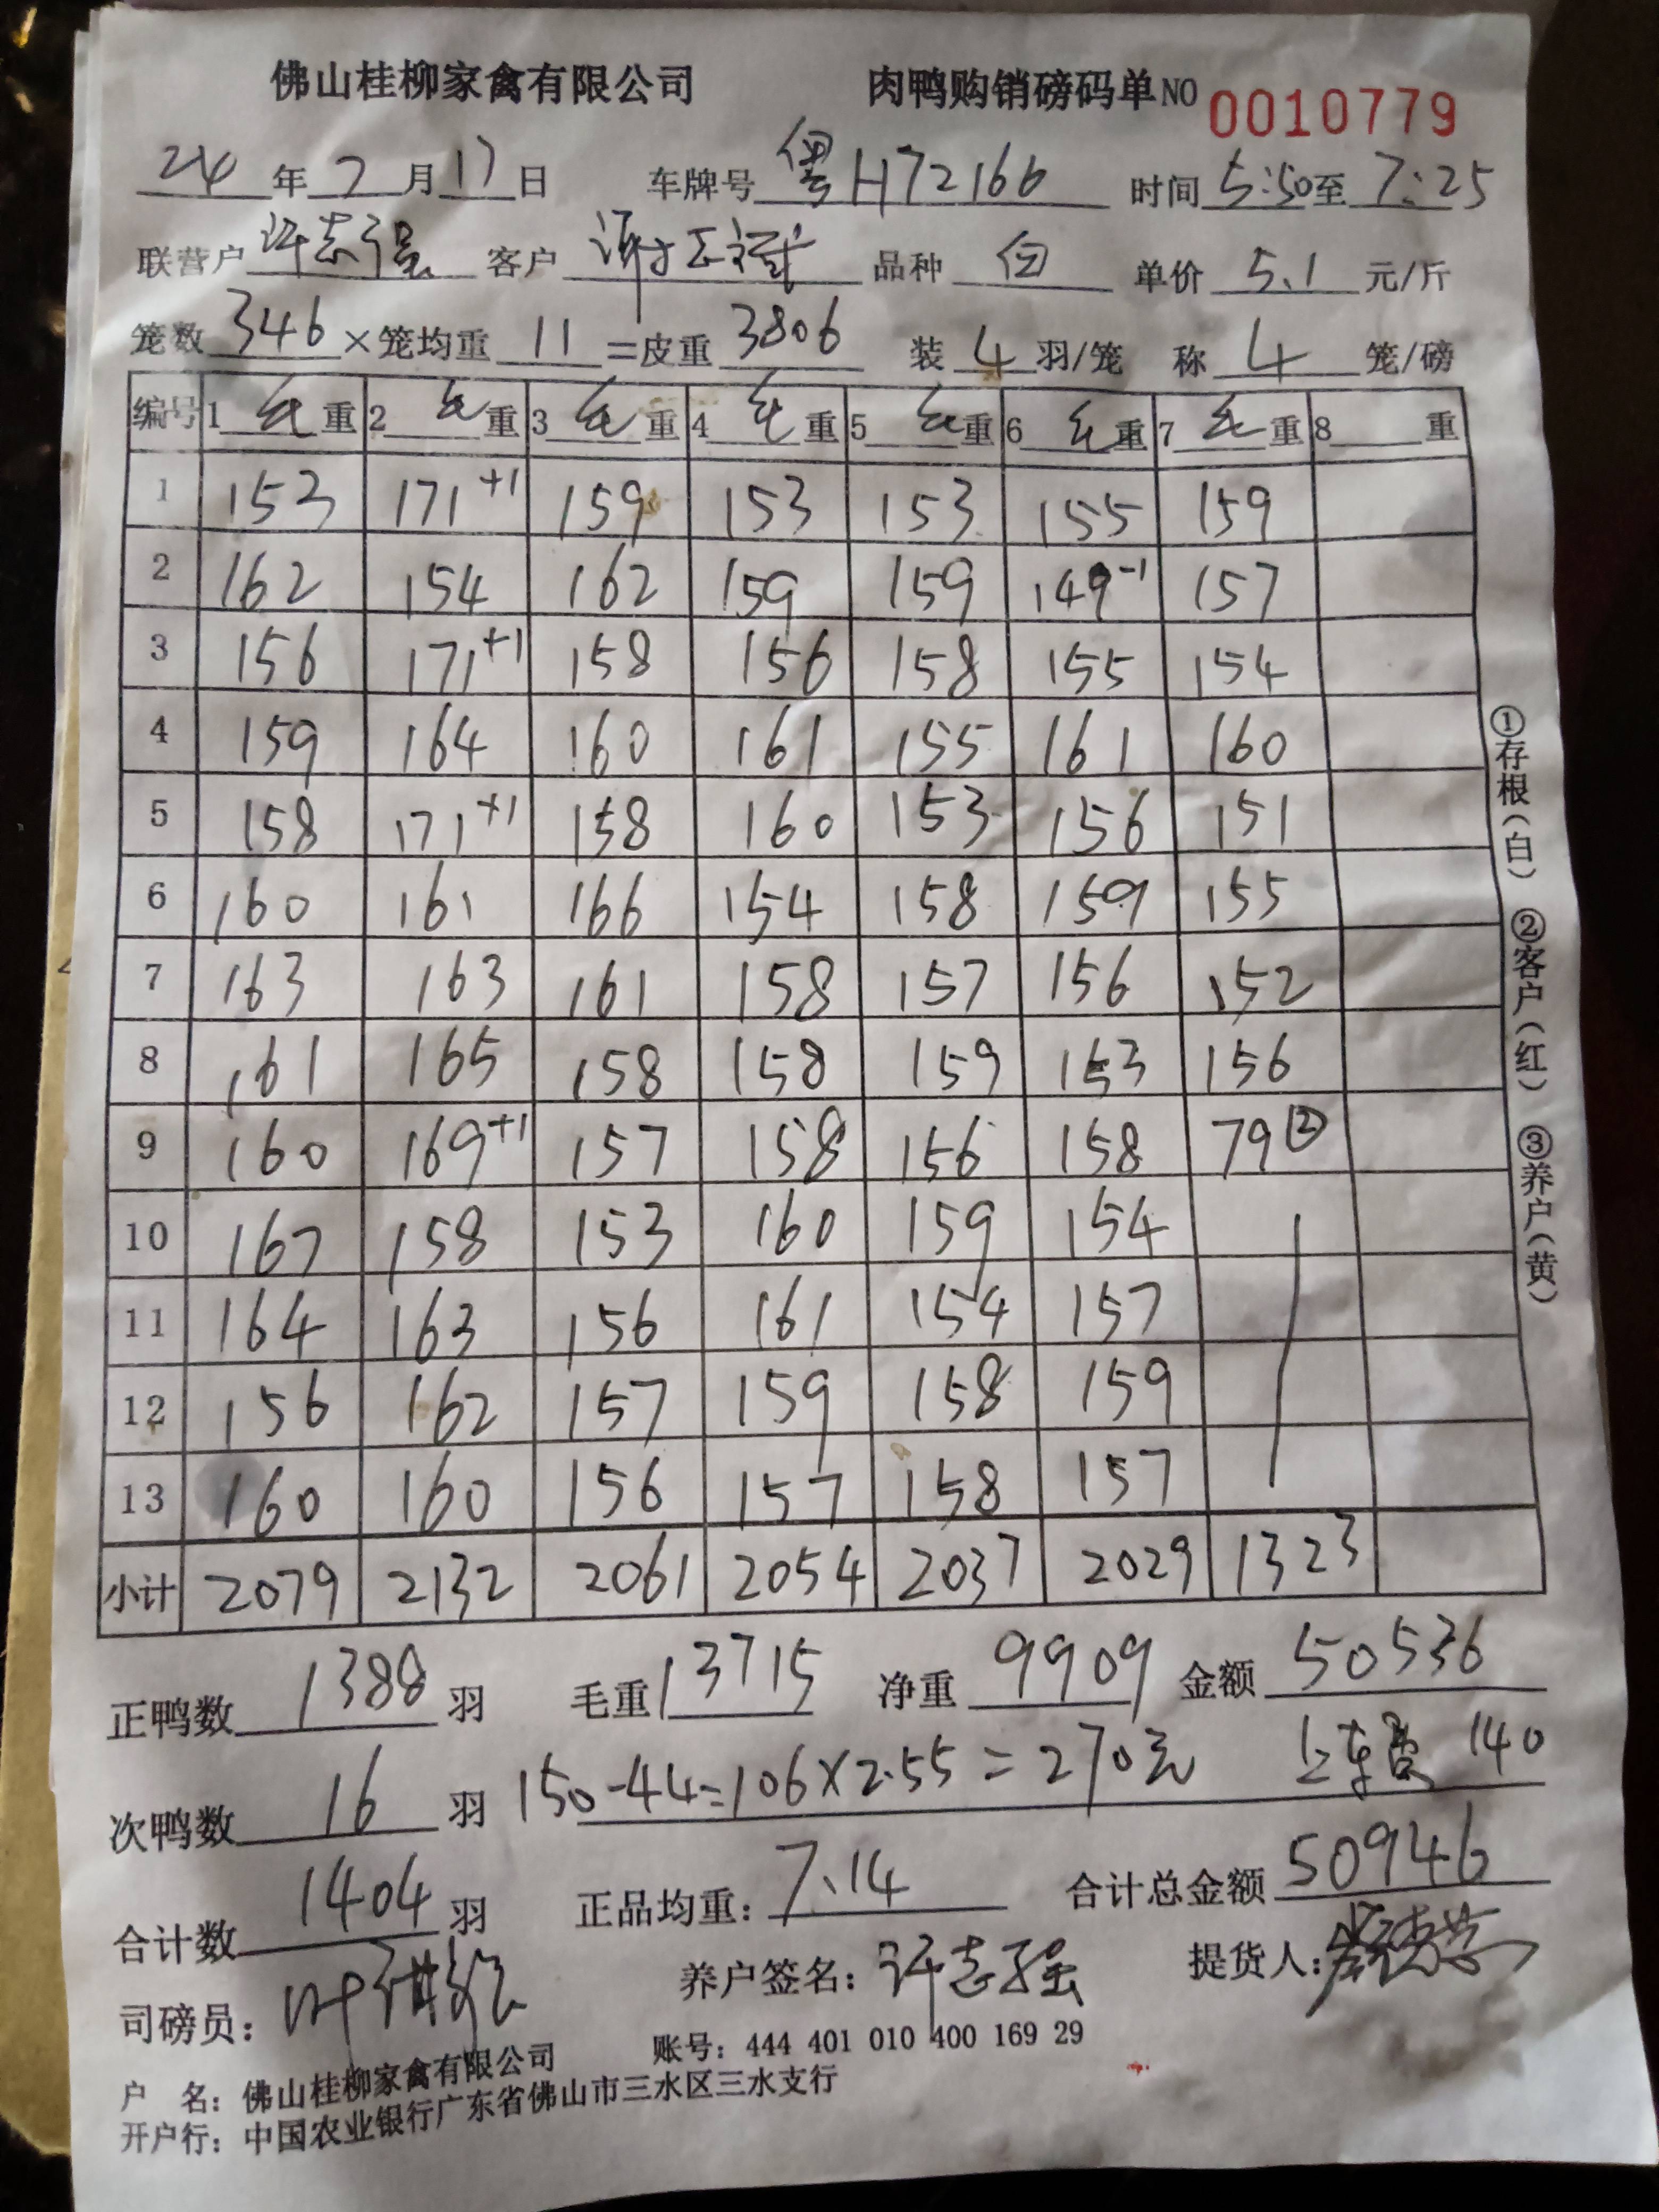 佛山桂柳家禽有限公司 肉鸭购销磅码单 NO 0010779
24 年 7 月 17 日 车牌号 粤H72166 时间 5:50 至 7:25
联营户 许志强 客户 品种 白 单价 5.1 元/斤
笼数 346 ×笼均重 11 =皮重 3806 装 4 羽/笼 称 4 笼/磅
编号 1 毛 重 2 毛 重 3 毛 重 4 毛 重 5 毛 重 6 毛 重 7 毛 重 8 重
1 153 171+1 159 153 153 155 159
2 162 154 162 159 159 149-1 157
3 156 171+1 158 156 158 155 154
4 159 164 160 161 155 161 160
5 158 171+1 158 160 153 156 151
6 160 161 166 154 158 159 155
7 163 163 161 158 157 156 152
8 161 165 158 158 159 153 156
9 160 169+1 157 158 156 158 79②
10 167 158 153 160 159 154
11 164 163 156 161 154 157
12 156 162 157 159 158 159
13 160 160 156 157 158 157
小计 2079 2132 2061 2054 2037 2029 1323
正鸭数 1388 羽 毛重 13715 净重 9909 金额 50536
次鸭数 16 羽 150-44=106×2.55=270元 上车费 140
合计数 1404 羽 正品均重: 7.14 合计总金额 50946
司磅员: 养户签名: 许志强 提货人:
户 名: 佛山桂柳家禽有限公司 账号: 444 401 010 400 169 29
开户行: 中国农业银行广东省佛山市三水区三水支行
①存根(白) ②客户(红) ③养户(黄)